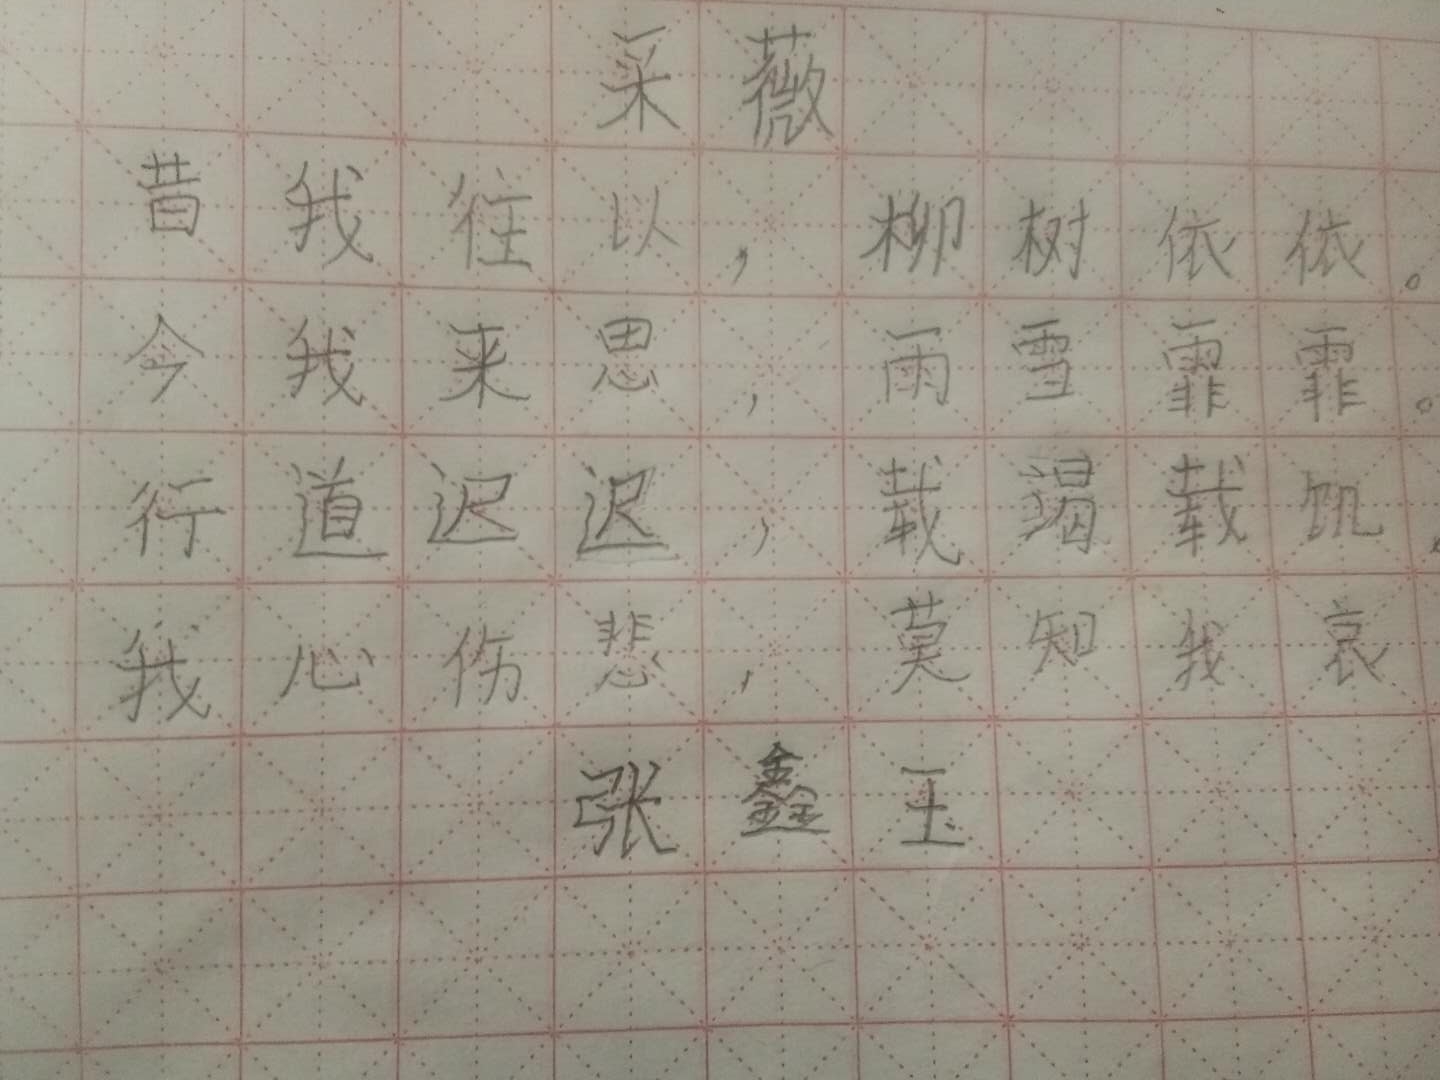 采薇
昔我往以，柳树依依。
今我来思，雨雪霏霏。
行道迟迟，载渴载饥。
我心伤悲，莫知我哀
张鑫玉